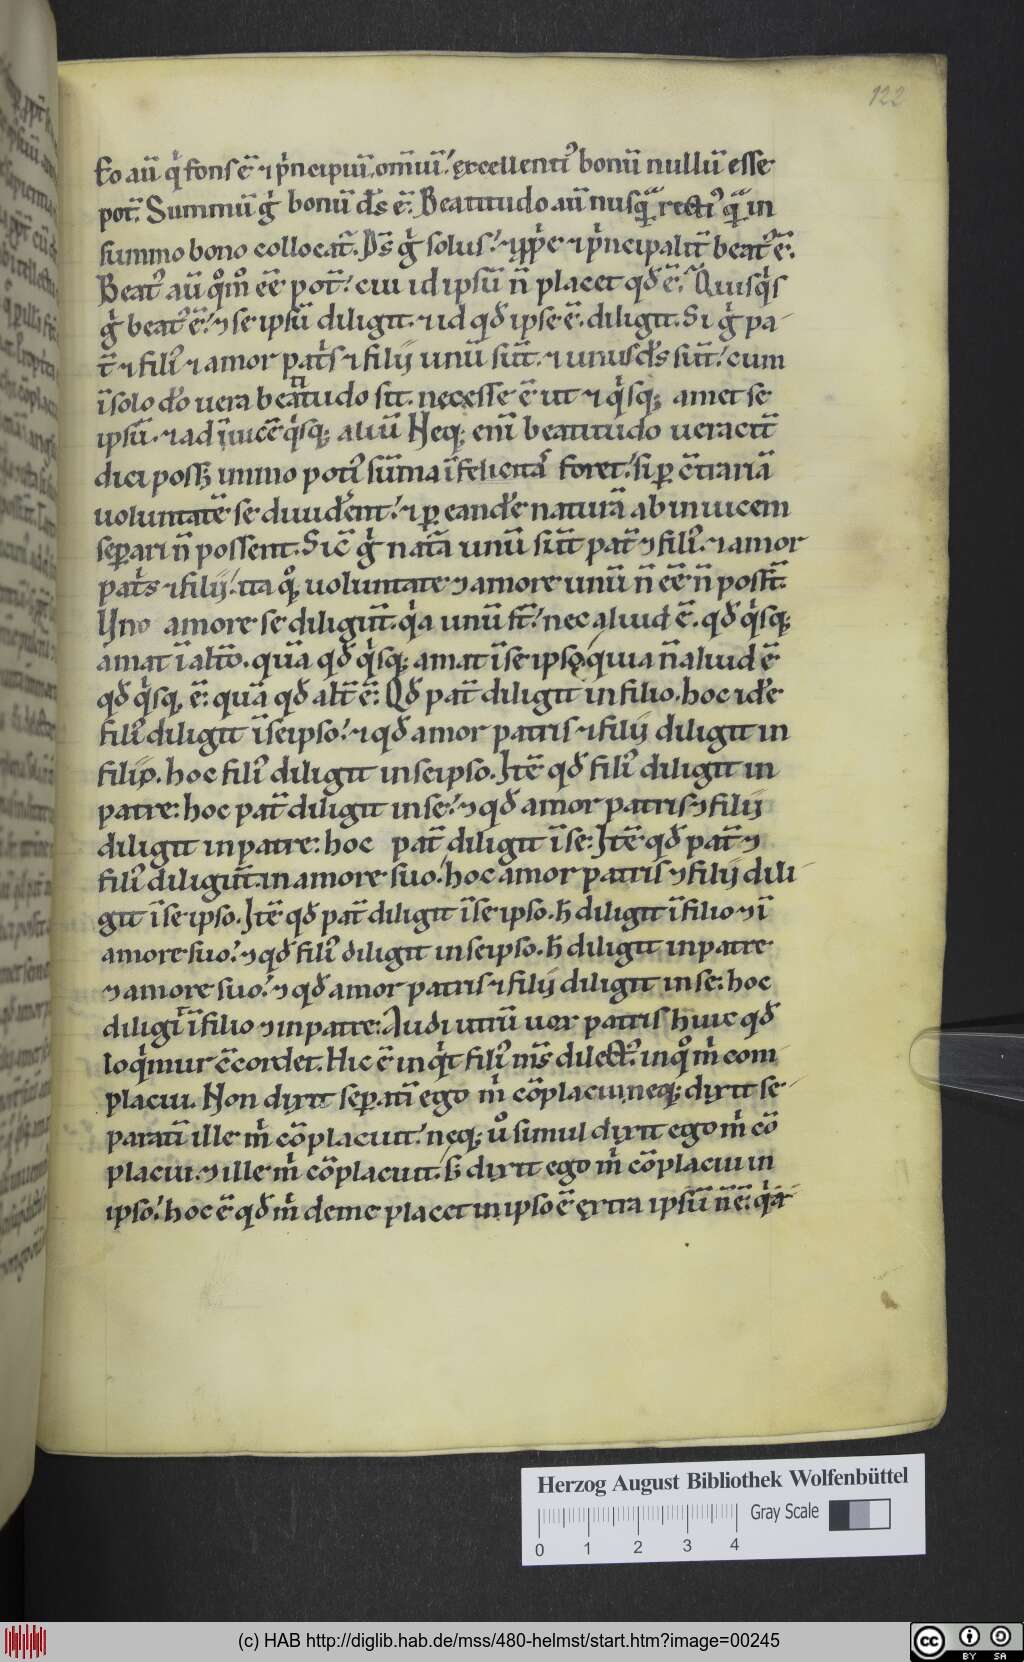 122
Eo aū q̇ fons ē ⁊ pͥncipiū omīuī. excellentiꝰ bonū nullū esse
pot̄. Summū ǵ bonū d̄s ē. Beatitudo aū nusqͣ̄ rectiꝰ qͣ̄ in
summo bono collocat̄. D̄s ǵ solus. ⁊ ꝓp̄e ⁊ pͥncipalit̄ beatꝰ ē.
Beatꝰ aū qͦm̊ eē pot̄. cui id ipsū n̄ placet qđ ē. Quisqͥs
ǵ beatꝰ ē. ⁊ se ipsū diligit. ⁊ id qđ ipse ē. diligit. Si ǵ pa-
t̄ ⁊ filiꝰ ⁊ amor patͥs ⁊ filij unū sūt. ⁊ unus d̄s sūt. cum
ī solo do uera beatitudo sit. necesse ē ut ⁊ qͥsq; amet se
ipsū. ⁊ ad īuicē qͥsq; aliū Neq; enī beatitudo ueracit̄
dici poss; immo potiꝰ sūma īfelicitas foret. si ꝑ c̄trariā
uoluntatē se diuid̄ent. ⁊ ꝑ eand̄e naturā ab inuicem
seꝑari n̄ possent. Sic̄ ǵ natā unū sūt pat̄ ⁊ filiꝰ. ⁊ amor
patͥs ⁊ filij. ita qͦq; uoluntate ⁊ amore unū n̄ eē n̄ poss̄t.
Uno amore se diligūt. qͥa unū s̄t. nec aliud ē. qđ qͥsq;
amat ī alt̄o. quā qđ qͥsq; amat ī se ipso. quia n̄ aliud ē
qđ qͥsq; ē. quā qđ alt̄ ē. Qđ pat̄ diligit in filio. hoc id̄e
filiꝰ diligit ī se ipso. ⁊ qđ amor patris ⁊ filij diligit in
filio. hoc filiꝰ diligit in se ipso. Itē qđ filiꝰ diligit in
patre. hoc pat̄ diligit in se. ⁊ qđ amor patris ⁊ filij
diligit in patre. hoc pat̄ diligit ī se. Itē qđ pat̄ ⁊
filiꝰ diligūt in amore suo. hoc amor patris ⁊ filij dili-
git ī se ipso. Itē qđ pat̄ diligit ī se ipso. ħ diligit ī filio ⁊ ī
amore suo. ⁊ qđ filiꝰ diligit in se ipso. ħ diligit in patre
⁊ amore suo. ⁊ qđ amor patris ⁊ filij diligit in se. hoc
diligit ī filio ⁊ in patre. Audi utrū uox patris huic qđ
loqͥmur c̄cordet. Hic ē inqͥt filiꝰ m̄s dilectꝰ. in qͦ mͥ com-
placui. Non dixit seꝑatī ego mͥ cōplacui. neq; dixit se-
paratī ille mͥ cōplacuit. neq; uͦ simul dixit ego mͥ cō
placui. ⁊ ille mͥ cōplacuit. s; dixit ego mͥ cōplacui in
ipso. hoc ē qđ mͥ de me placet in ipso ē extra ipsū n̄ ē. qͥa
Herzog August Bibliothek Wolfenbüttel
Gray Scale
0 1 2 3 4
(c) HAB http://diglib.hab.de/mss/480-helmst/start.htm?image=00245
cc BY SA